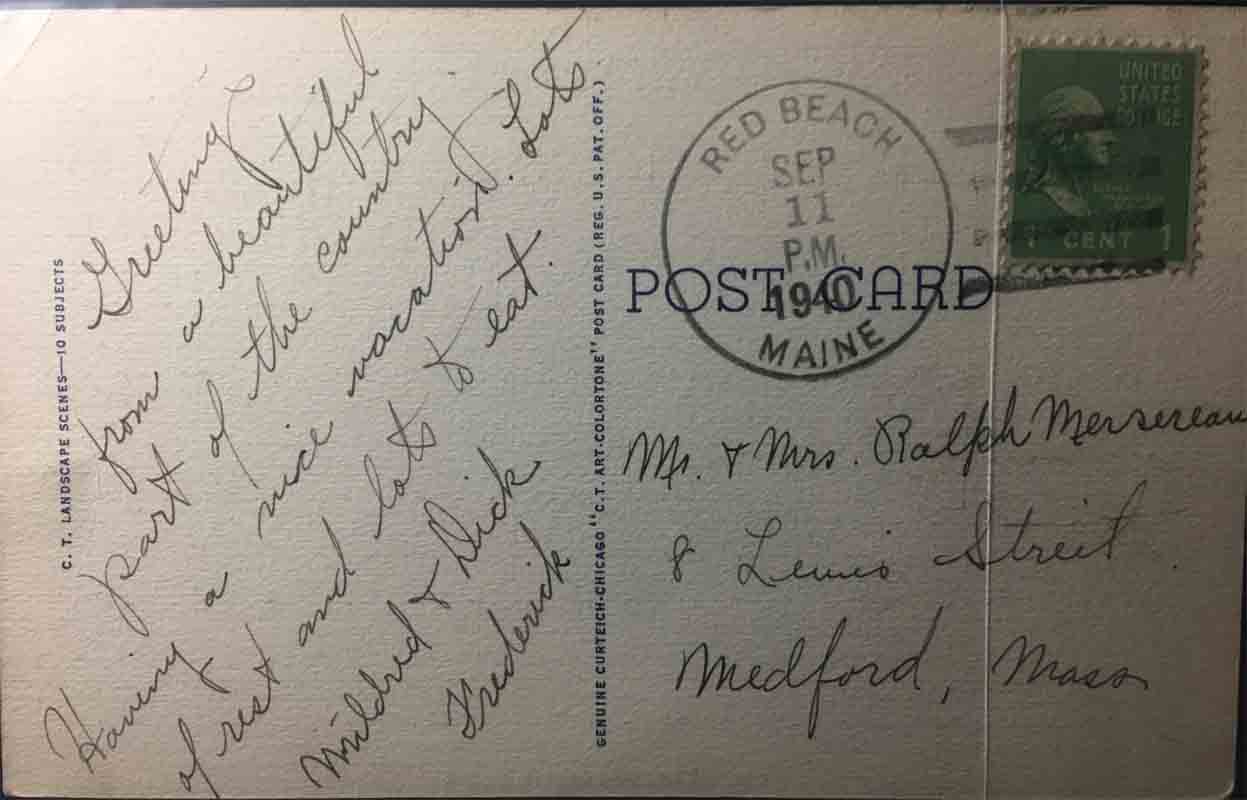 C. T. LANDSCAPE SCENES—10 SUBJECTS
Greetings
from a beautiful
part of the country
Having a nice vacation. Lots
of rest and lots to eat.
Mildred & Dick
Frederick
GENUINE CURTEICH-CHICAGO "C.T. ART-COLORTONE" POST CARD (REG. U.S. PAT. OFF.)
POST CARD
RED BEACH
SEP
11
P.M.
1940
MAINE
UNITED
STATES
POSTAGE
1 CENT 1
Mr. & Mrs. Ralph Mersereau
8 Lewis Street
Medford, Mass